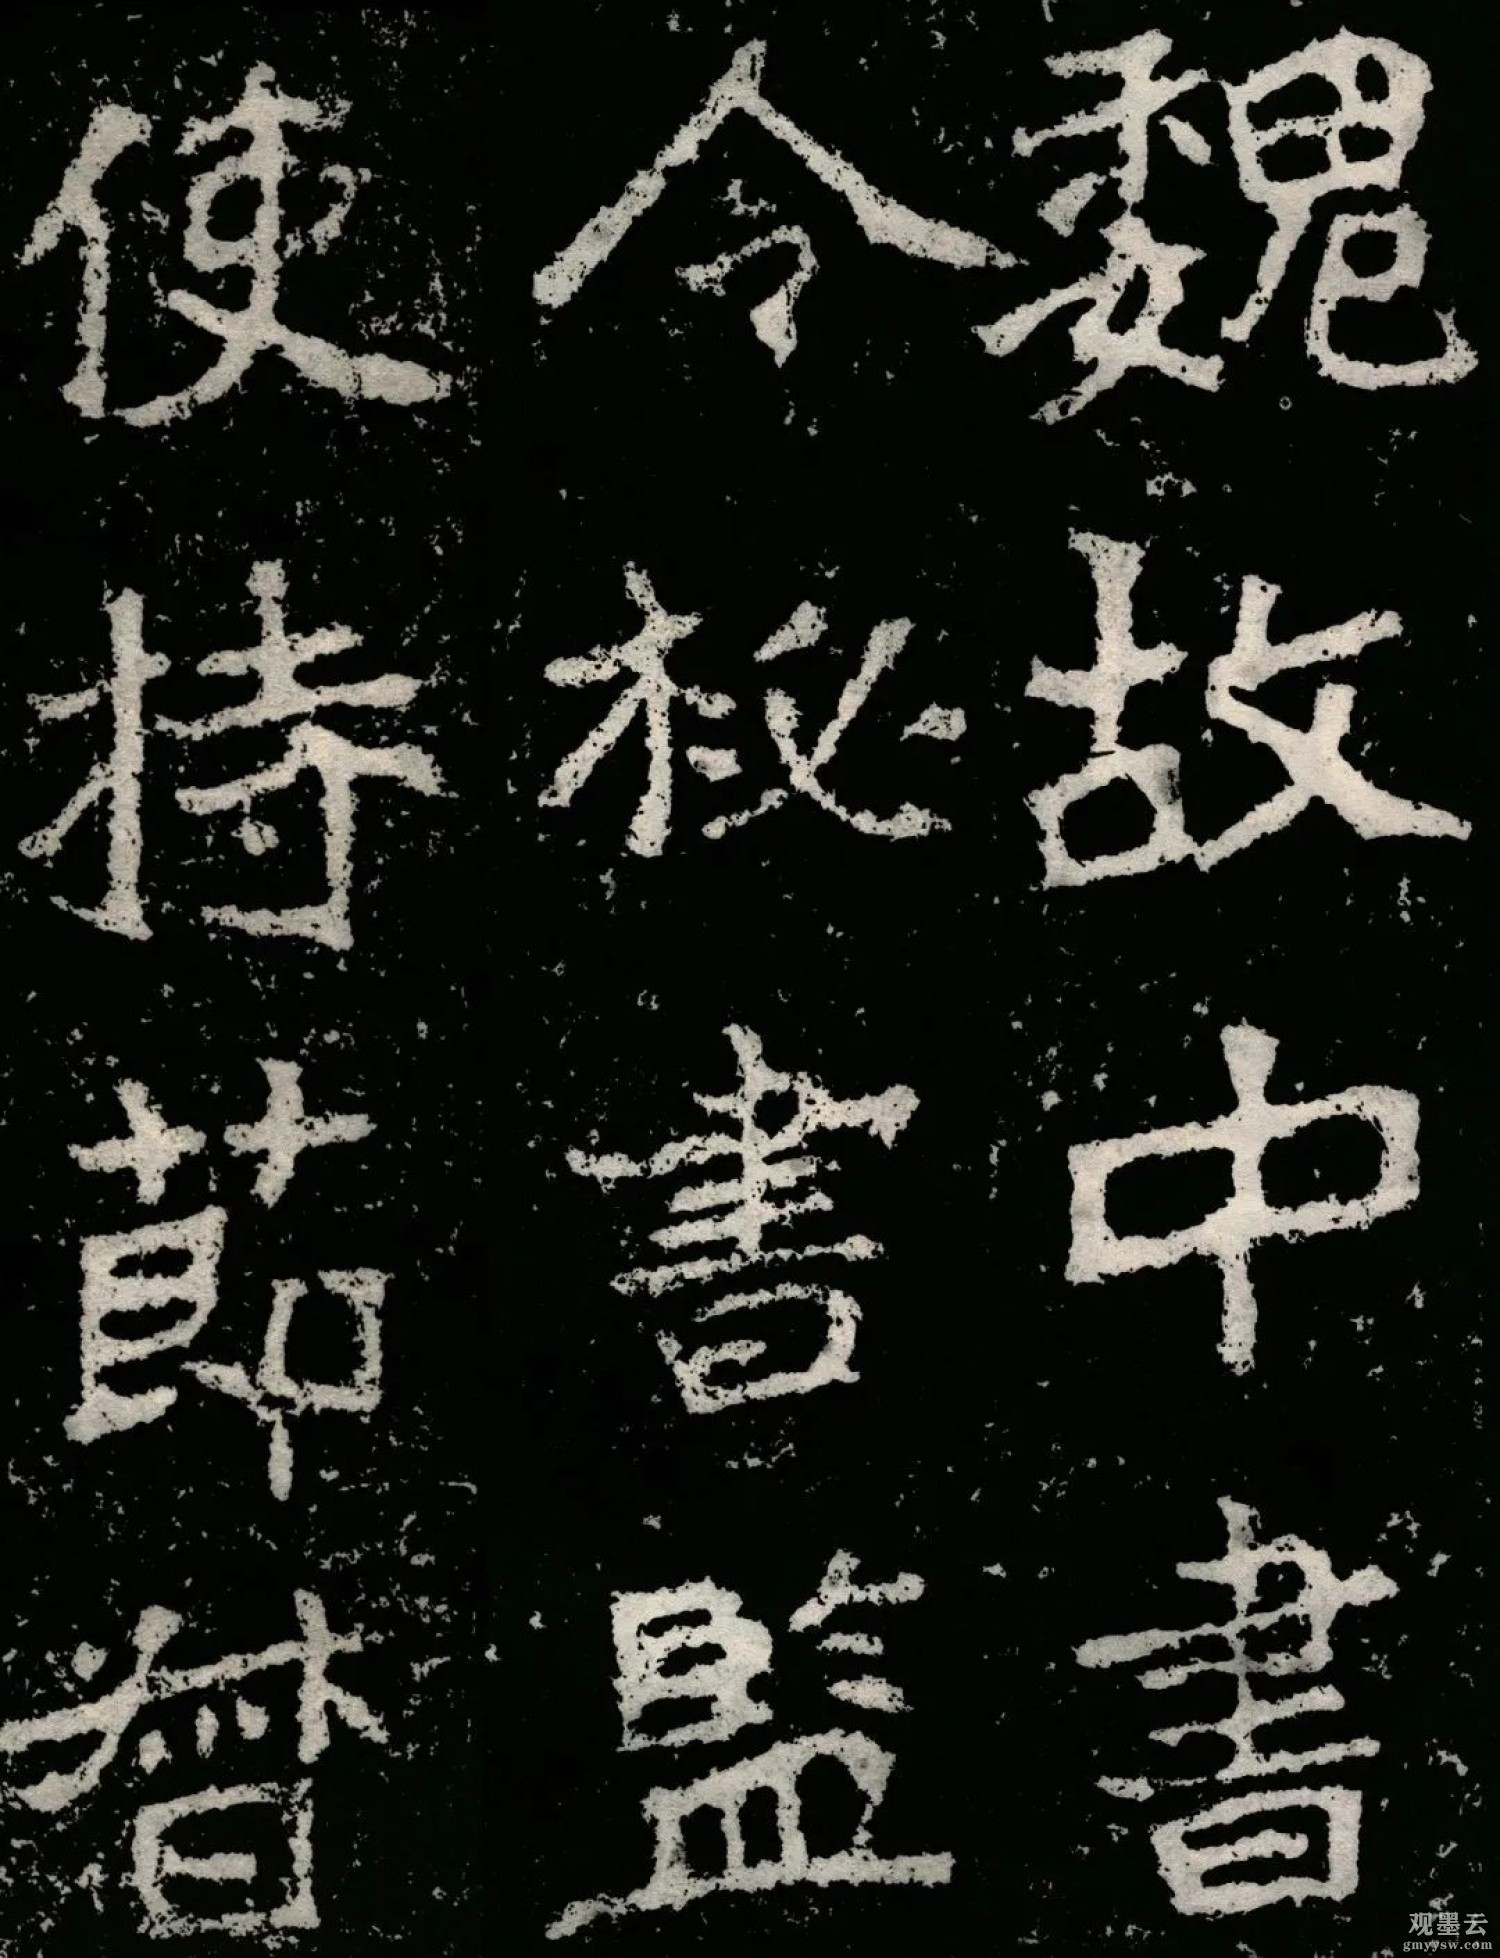 魏故中書
令秘書監
使持節督
观墨云
gmyysw.com